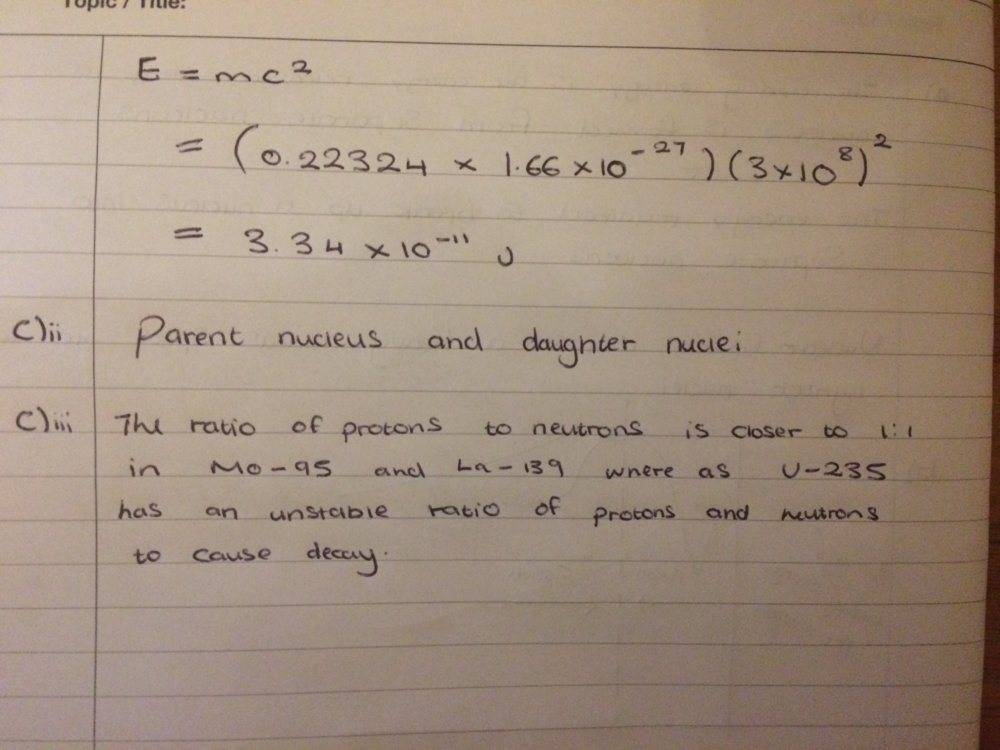 Topic / Title:
E = mc²
= (0.22324 × 1.66 × 10⁻²⁷) (3×10⁸)²
= 3.34 × 10⁻¹¹ J
C)ii Parent nucleus and daughter nuclei
C)iii The ratio of protons to neutrons is closer to 1:1
in Mo-95 and La-139 where as U-235
has an unstable ratio of protons and neutrons
to cause decay.